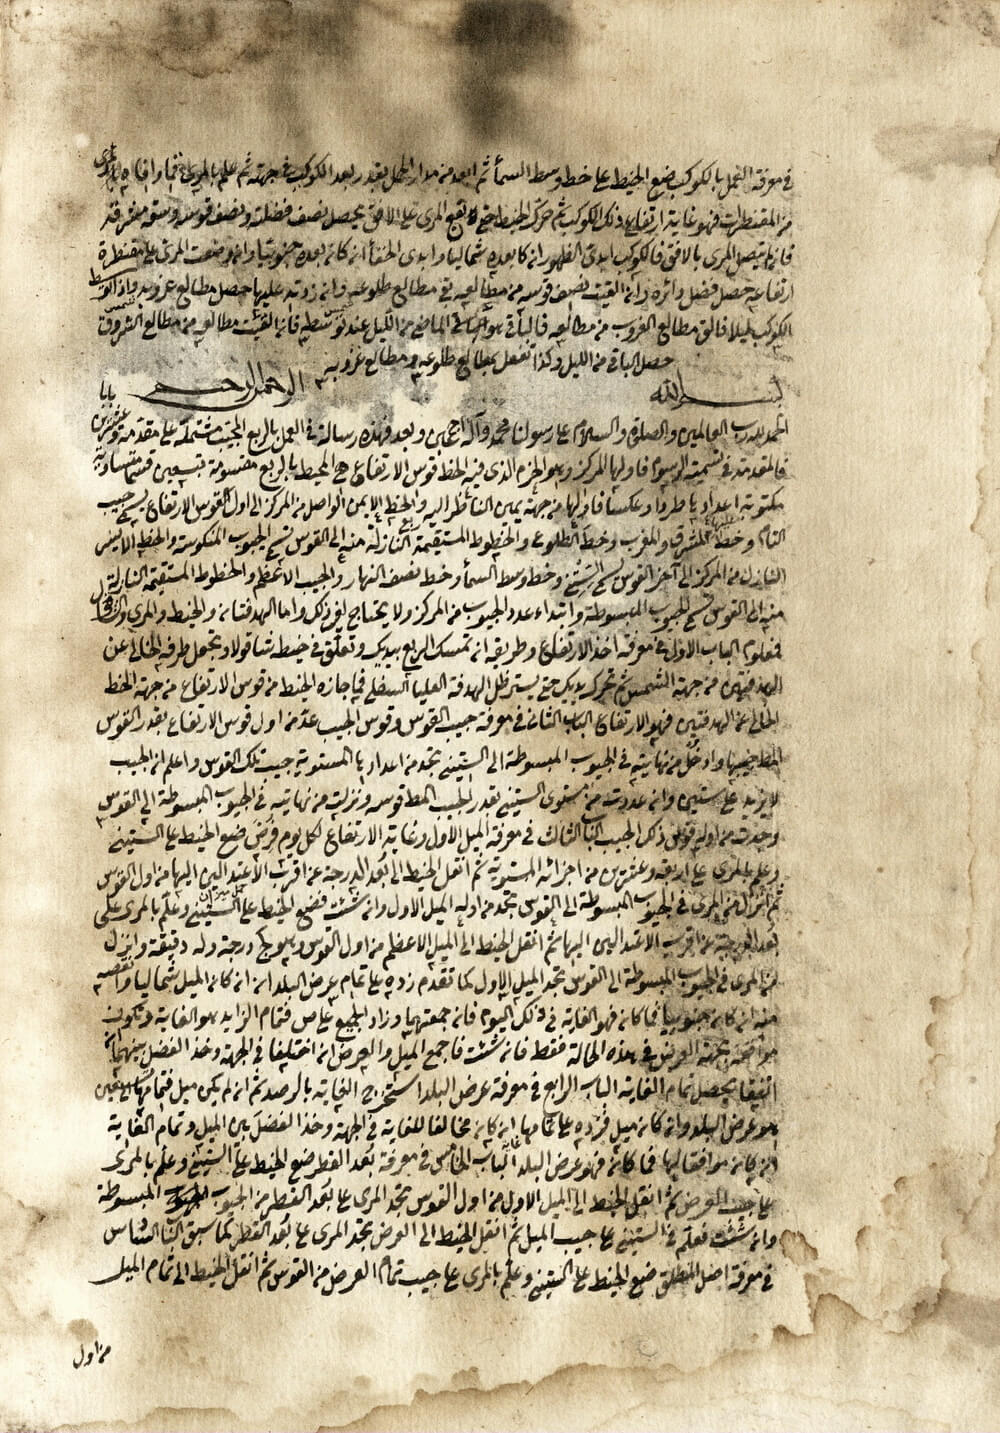 في معرفة العمل بالكوكب ضع الخيط على خط وسط السماء ثم ابعد من مدار الحمل بقدر بعد الكوكب في جهته ثم علم بالمرى فما وافاه المرى
من المقنطرات فهو غاية ارتفاع ذلك الكوكب ثم حرك الخيط حتى يقع المرى على الافق يحصل نصف فضلته ونصف قوسه وسعة مشرقه
فان لم يتصل المرى بالافق فالكوكب ابدى الظهور ان كان بعده شماليا وابدى الخفا ان كان بعده جنوبيا وان وضعت المرى على مقنطرة
ارتفاعه حصل فضل دائره وان القيت نصف قوسه من مطالعه بقى مطالع طلوعه وان زدته عليها حصل مطالع غروبه واذا توسط
الكوكب ليلا فالق مطالع الغروب من مطالعه فالباقى هو الماضى من الليل عند توسطه فان القيت مطالعه من مطالع الشروق
حصل الباقى من الليل وكذا تفعل بمطالع طلوعه ومطالع غروبه
بسم الله الرحمن الرحيم
الحمد لله رب العالمين والصلوة والسلام على رسولنا محمد وآله اجمعين وبعد فهذه رسالة في العمل بالربع المجيب مشتملة على مقدمة وعشرين بابا
فالمقدمة في تسمية الرسوم فاولها المركز وهو الخرم الذى فيه الخيط قوس الارتفاع هو المحيط بالربع مقسومة بتسعين قسما متساوية
مكتوبة اعدادها طردا وعكسا فاولها من جهة يمين الناظر اليه والخط الايمن الواصل من المركز الى اول القوس الارتفاع يسمى جيب
التمام وخط المشرق والمغرب وخط الطلوع والخطوط المستقيمة النازلة منه الى القوس تسمى الجيوب المنكوسة والخط الايسر
النازل من المركز الى آخر القوس يسمى الستينى وخط وسط السماء وخط نصف النهار والجيب الاعظم والخطوط المستقيمة النازلة
منه الى القوس تسمى الجيوب المبسوطة وابتداء عدد الجيوب من المركز ولا يحتاج لغير ذلك واما الهدفتان والخيط والمرى والشاقول
فمعلوم الباب الاول في معرفة اخذ الارتفاع وطريقه ان تمسك الربع بيديك وتعلق في خيطه شاقولا وتجعل طرفه الخالى عن
الهدفتين من جهة الشمس ثم تحرك يديك حتى يستر ظل الهدفة العليا السفلى فما جازه الخيط من قوس الارتفاع من جهة الخط
الخالى عن الهدفتين فهو الارتفاع الباب الثانى في معرفة جيب القوس وقوس الجيب عد من اول قوس الارتفاع بقدر القوس
المط جيبها وادخل من نهايته في الجيوب المبسوطة الى الستينى تجد من اعداده المستوية جيب تلك القوس واعلم ان الجيب
لا يزيد على ستين وان عددت من مستوى الستينى بقدر الجيب المط قوسه ونزلت من نهايته في الجيوب المبسوطة الى القوس
وجدت من اوله قوس ذلك الجيب الباب الثالث في معرفة الميل الاول وغاية الارتفاع لكل يوم فرض ضع الخيط على الستينى
وعلم بالمرى على اربعة وعشرين من اجزائه المستوية ثم انقل الخيط الى بعد الدرجة عن اقرب الاعتدالين اليها من اول القوس
ثم انزل من المرى في الجيوب المبسوطة الى القوس تجد من اوله الميل الاول وان شئت فضع الخيط على الستينى وعلم بالمرى على
بعد الدرجة عن اقرب الاعتدالين اليها ثم انقل الخيط الى الميل الاعظم من اول القوس وهو كج درجة وله دقيقة وانزل
من المرى في الجيوب المبسوطة الى القوس تجد الميل الاول كما تقدم زده على تمام عرض البلد ان كان الميل شماليا وانقصه
منه ان كان جنوبيا فما كان فهو الغاية في ذلك اليوم فان جمعتهما وزاد الجميع على ص فتمام الزايد هو الغاية وتكون
موافقة بجهة العرض في هذه الحالة فقط فان شئت فاجمع الميل والعرض ان اختلفا في الجهة وخذ الفضل بينهما ان
اتفقا يحصل تمام الغاية الباب الرابع في معرفة عرض البلد استخرج الغاية بالرصد ثم ان لم يكن ميل فتمامها
هو عرض البلد وان كان ميل فزده على تمامها ان كان مخالفا للغاية في الجهة وخذ الفضل بين الميل وتمام الغاية
ان كان موافقا لها فما كان فهو عرض البلد الباب الخامس في معرفة بعد القطر ضع الخيط على الستينى وعلم بالمرى
على جيب العرض ثم انقل الخيط الى الميل الاول من اول القوس تجد المرى على بعد القطر من الجيوب المبسوطة
وان شئت فعلم في الستينى على جيب الميل ثم انقل الخيط الى العرض تجد المرى على بعد القطر كما سبق الباب السادس
في معرفة اصل المطلق ضع الخيط على الستينى وعلم بالمرى على جيب تمام العرض من القوس ثم انقل الخيط الى تمام الميل
من اول